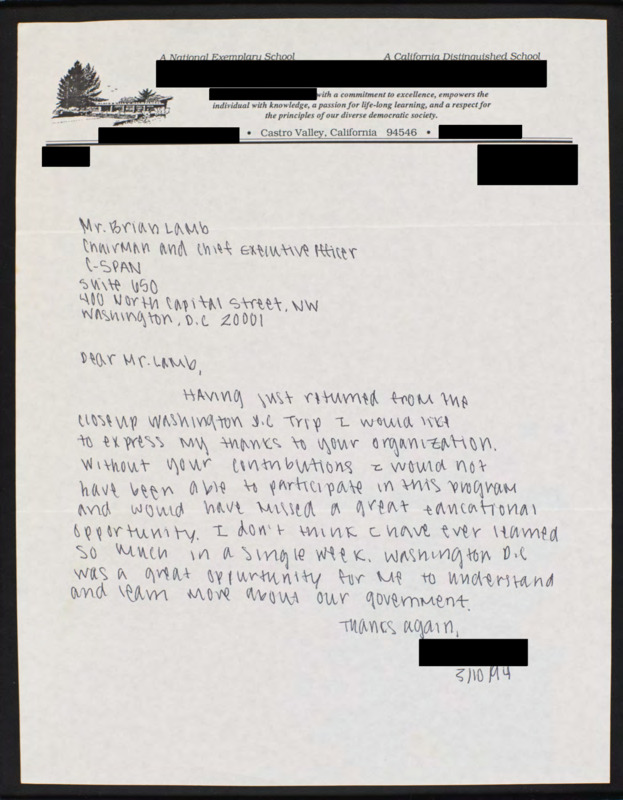 A National Exemplary School A California Distinguished School
with a commitment to excellence, empowers the
individual with knowledge, a passion for life-long learning, and a respect for
the principles of our diverse democratic society.
• Castro Valley, California 94546 •
Mr. Brian Lamb
Chairman and Chief Executive Officer
C-SPAN
Suite 650
400 North Capital Street, NW
Washington, D.C 20001
Dear Mr. Lamb,
Having just returned from the
closeup Washington D.C Trip I would like
to express my thanks to your organization.
Without your contributions I would not
have been able to participate in this program
and would have missed a great educational
opportunity. I don't think I have ever learned
so much in a single week. Washington D.C
was a great oppurtunity for me to understand
and learn more about our government.
Thanks again,
3/10/94